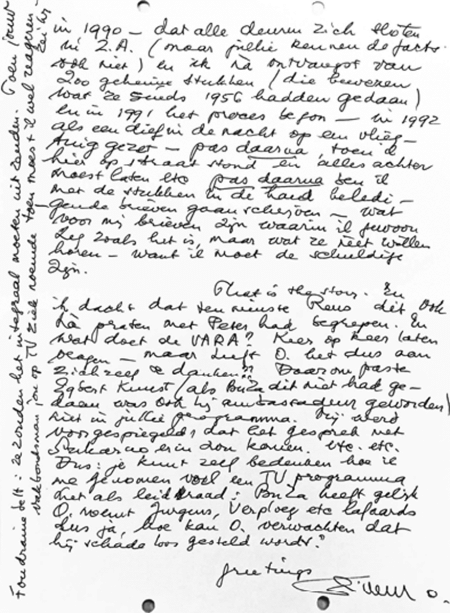 in 1990 – dat alle deuren zich sloten
in Z.A. (maar jullie kennen de facts
ook niet) en ik na ontvangst van
200 geheime stukken (die bewezen
wat ze sinds 1956 hadden gedaan)
en in 1991 het proces begon – in 1992
als een dief in de nacht op een vlieg-
tuig gezet – pas daarna, toen ik
hier op straat stond en alles achter
moest laten etc pas daarna ben ik
met de stukken in de hand beledi-
gende brieven gaan schrijven – wat
voor mij brieven zijn waarin ik gewoon
zeg zoals het is, maar wat ze niet willen
horen – want ik moet de schuldige
zijn.
That is the story. En
ik dacht dat ten minste Rens dit ook
na praten met Peter had begrepen. En
wat doet de VARA? Keer op keer laten
vragen – maar heeft O. het dus aan
zichzelf te danken?? Daarom paste
Egbert Kunst (als BuZa dit niet had ge-
daan was ook hij ambassadeur geworden)
niet in jullie programma. Hij werd
voorgespiegeld, dat het gesprek met
Sukarno erin zou komen. etc. etc.
Dus: je kunt zelf bedenken hoe ik
me genomen voel een TV programma
met als leidraad: BuZa heeft gelijk
O. noemt Jurgens, Verploeg etc lafaards
dus ja, hoe kan O. verwachten dat
hij schadeloos gesteld wordt?
greetings
Foudraine belt: ze zonden het integraal moeten uitzenden. Toen jouw
vakbondsman jou op TV ziek noemde toen moest ik wel reageren.